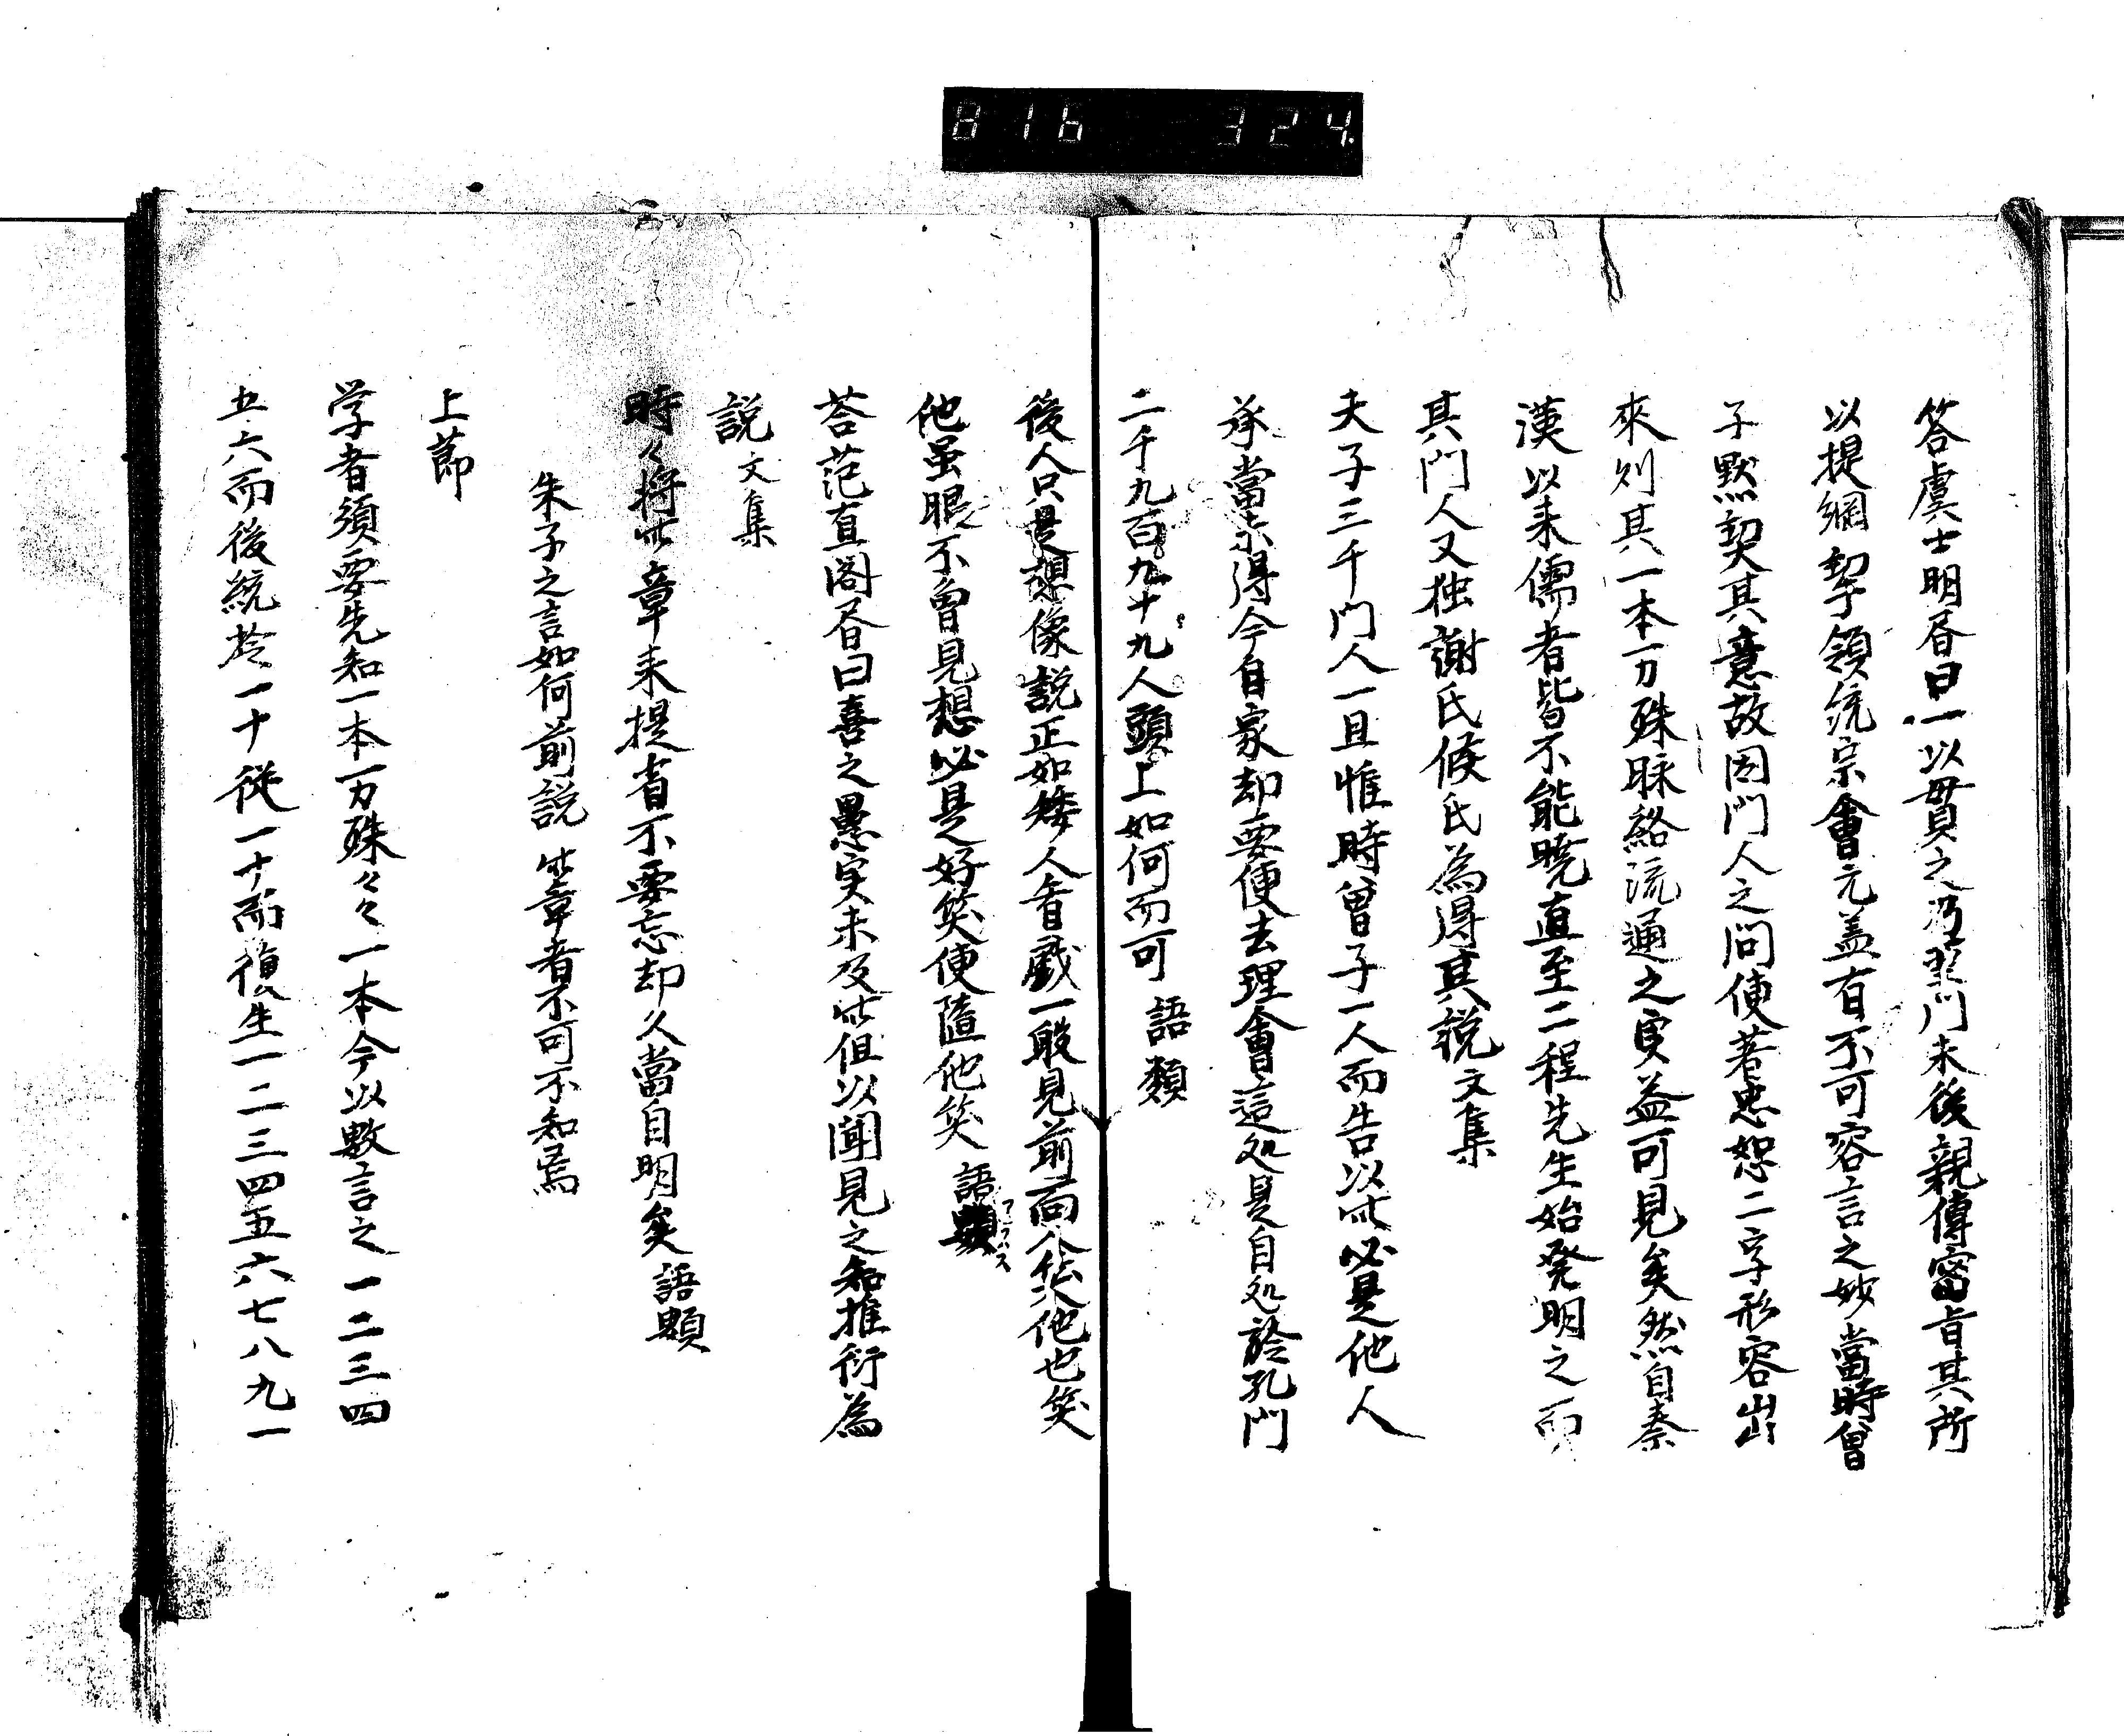 816 324
答虞士明書曰一以貫之乃聖門末後親傳密旨其所
以提綱挈領統宗會元盖有不可容言之妙當時曾
子默契其意故因門人之問便著忠恕二字形容出
來則其一本万殊脉絡流通之実益可見矣然自秦
漢以来儒者皆不能曉直至二程先生始発明之而
其門人又独謝氏侯氏為得其説 文集
夫子三千門人一旦惟時曾子一人而告以此必是他人
承當未得今自家却要便去理會這処是自処於孔門
二千九百九十九人頭上如何而可 語類
後人只是想像説正如矮人看戲一般見前面人笑他也笑
他虽眼不曽見想必是好笑便隨他笑 語類
答范直閣書曰熹之愚実未及此但以聞見之知推衍為
説 文集
時々将此章来提省不要忘却久當自明矣 語類
朱子之言如何前説此章者不可不知焉
上莭
学者須要先知一本万殊々々一本今以數言之一二三四
五六而後統於一十従一十而後生一二三四五六七八九一